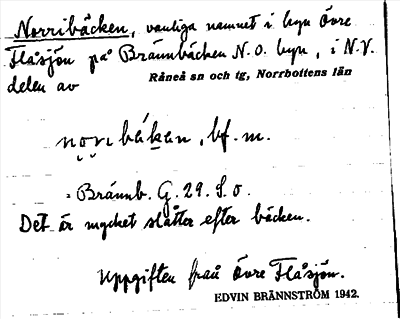 Norribäcken, vanliga namnet i byn Övre
Flåsjön på Brännbäcken N.O. byn, i N.V.
Råneå sn och tg, Norrbottens län
delen av
nọribákan, bf. m.
= Brännb. G. 29. S. o
Det är mycket slåtter efter bäcken.
Uppgiften från Övre Flåsjön.
EDVIN BRÄNNSTRÖM 1942.